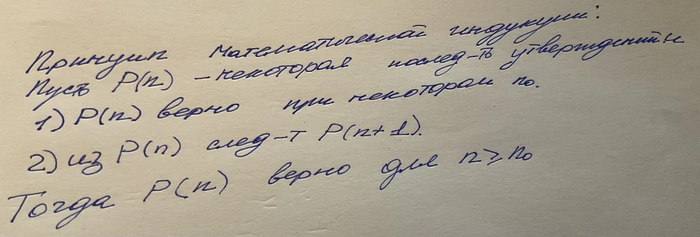 Принцип математической индукции:
Пусть P(n) - некоторая послед-ть утверждений и
1) P(n) верно при некотором n₀.
2) из P(n) след-т P(n+1).
Тогда P(n) верно для n ≥ n₀